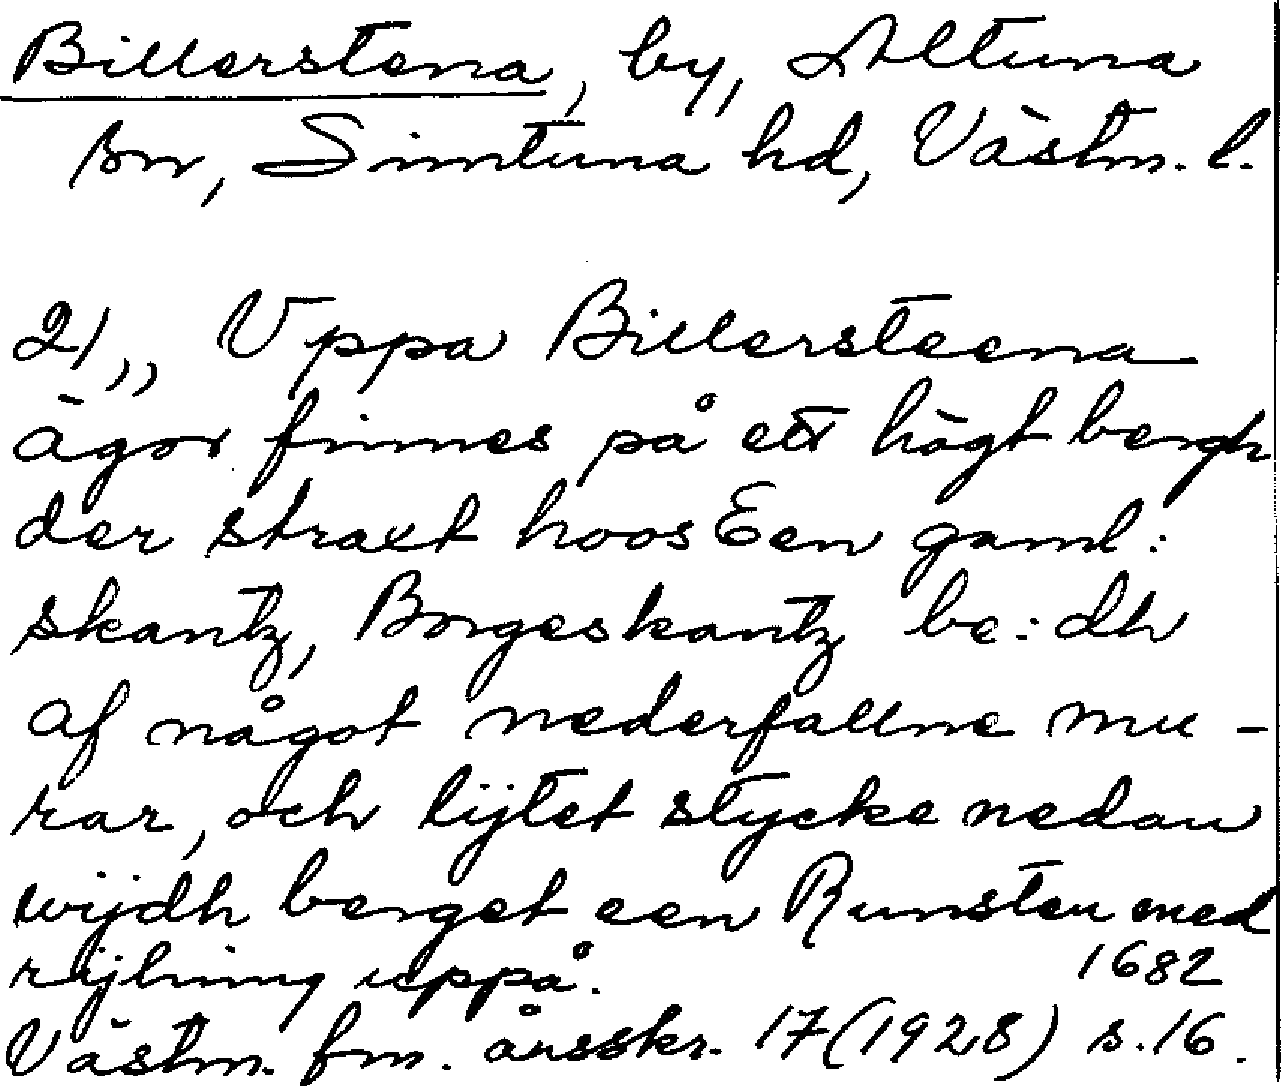 Billerstena, by, Altuna
sn, Simtuna hd, Västm. l.
2) „Uppa Billersteena
ägor finnes på ett högt bergh
der straxt hoos Een gaml:
skantz, Borgeskantz be:dh
af något nederfallne mu-
rar, och lijtet stycke nedan
wijdh berget een Runsten med
rijtning uppå. 1682
Västm. fm. årsskr. 17 (1928) s. 16.